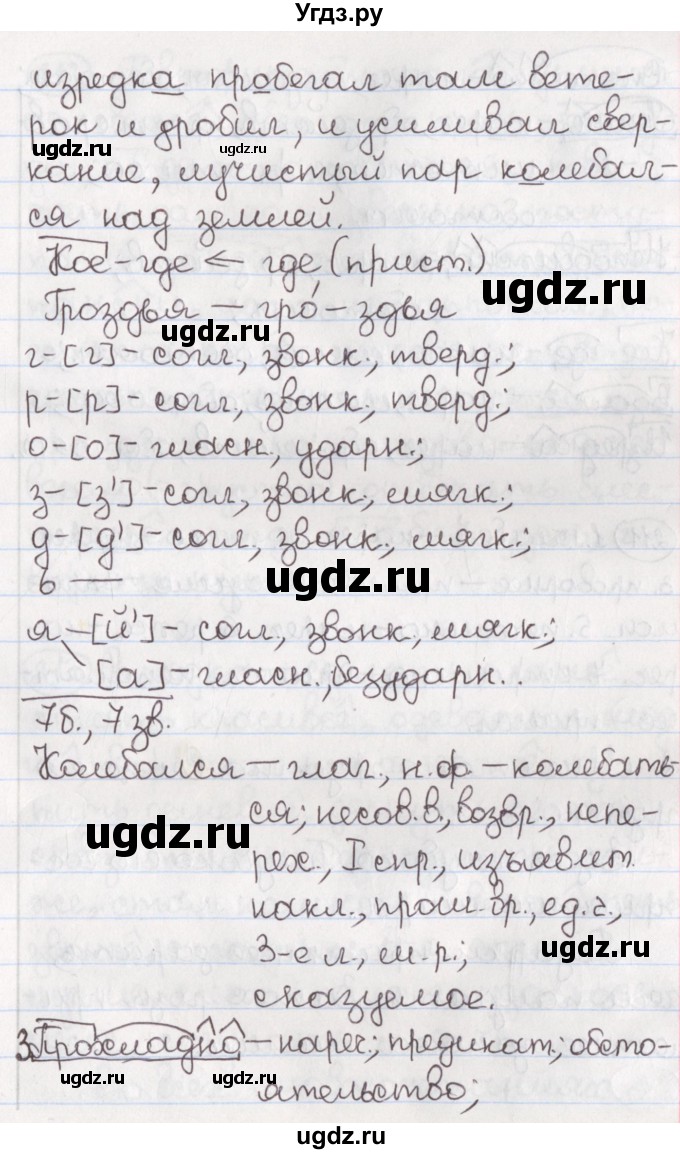 Угдз.ру
изредка пробегал там вете-
рок и дробил, и усиливал свер-
ugdz.ru ugdz.ru
кание, лучистый пар колебал-
ся над землей.
Кое-где ← где (прист.)
ugdz.ru
Гроздья – гро́ – здья
г-[г] – согл., звонк., тверд.;
р-[р] – согл., звонк., тверд.;
о-[о] – гласн., ударн.;
з-[з'] – согл., звонк., мягк.;
д-[д'] – согл., звонк., мягк.;
ugdz.ru
ь —
я-[й'] – согл., звонк., мягк.;
[а] – гласн., безударн..
7б., 7 зв.
Колебался – глаг., н.ф. – колебать-
ugdz.ru
ся; несов.в., возвр., непе-
рех., I спр., изъявит.
накл., прош. вр., ед.ч.,
3-е л., м.р.;
ugdz.ru
сказуемое.
3. Прохладно – нареч.; предикат.; обсто-
ugdz.ru ugdz.ru
ятельство;
ugdz.ru